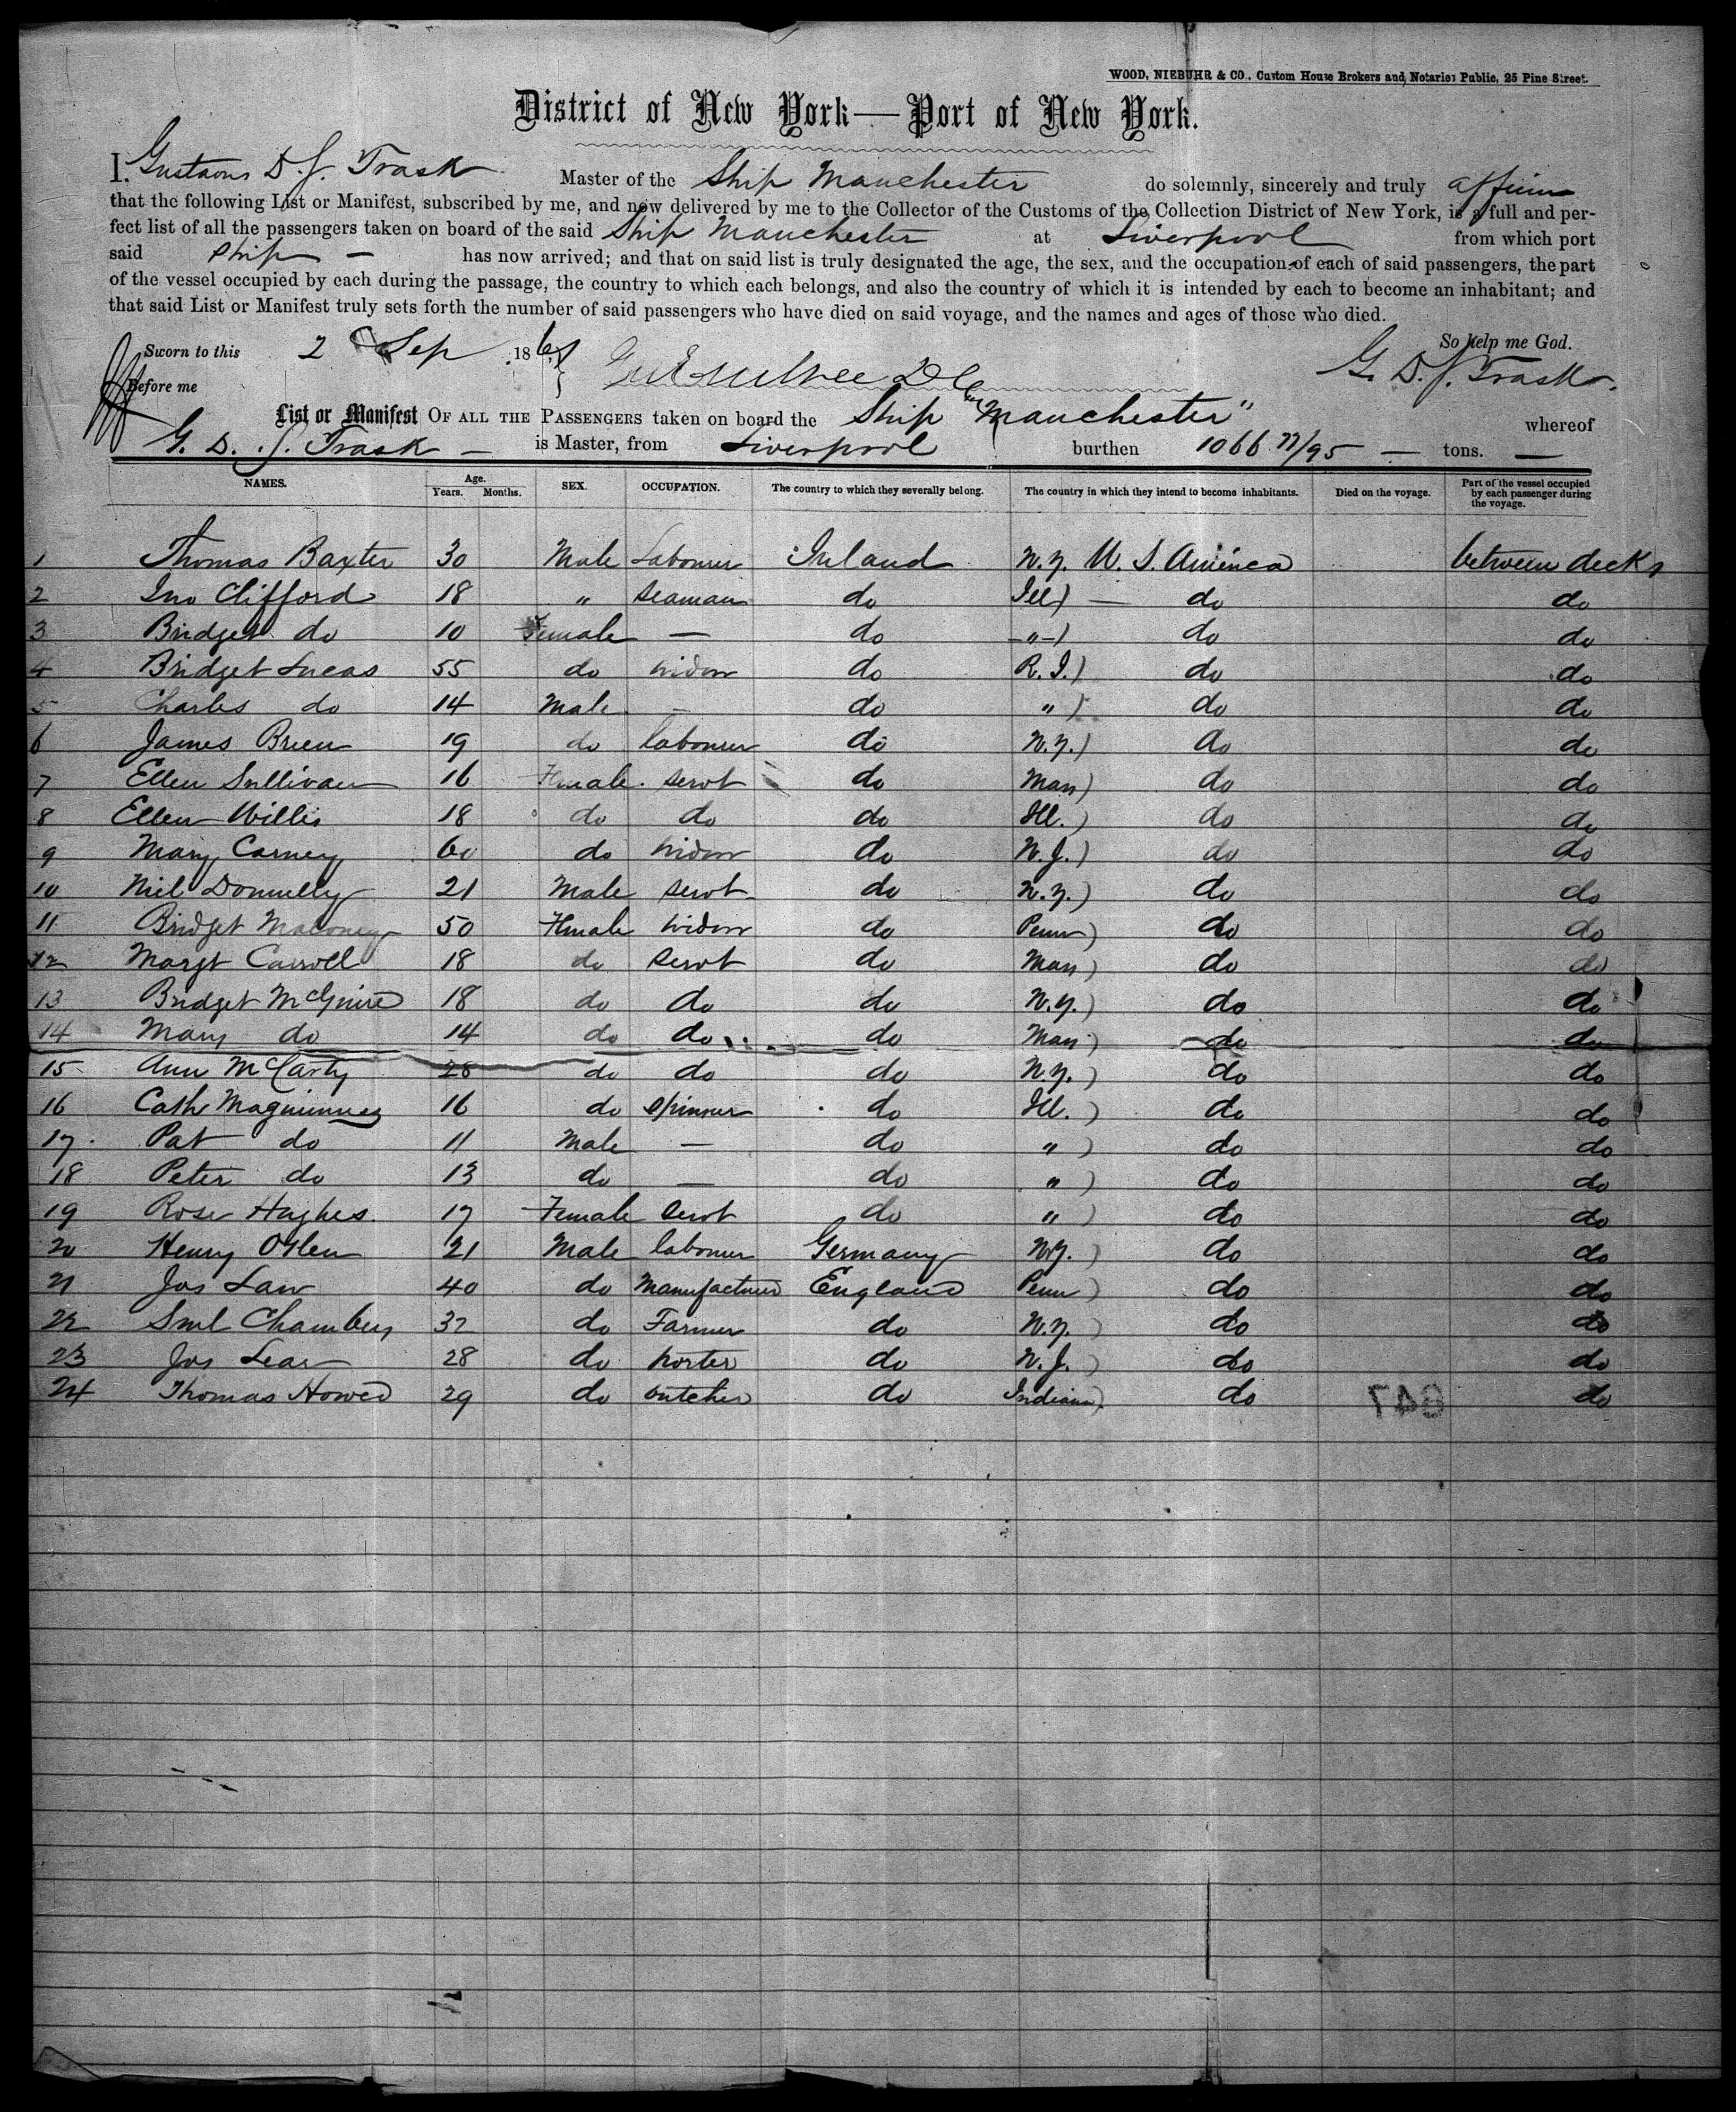 WOOD, NIEBUHR & CO., Custom House Brokers and Notaries Public, 25 Pine Street.
District of New York—Port of New York.
I, Gustavus D. S. Trask Master of the Ship Manchester do solemnly, sincerely and truly affirm
that the following List or Manifest, subscribed by me, and now delivered by me to the Collector of the Customs of the Collection District of New York, is a full and per-
fect list of all the passengers taken on board of the said Ship Manchester at Liverpool from which port
said Ship — has now arrived; and that on said list is truly designated the age, the sex, and the occupation of each of said passengers, the part
of the vessel occupied by each during the passage, the country to which each belongs, and also the country of which it is intended by each to become an inhabitant; and
that said List or Manifest truly sets forth the number of said passengers who have died on said voyage, and the names and ages of those who died.
So help me God.
Sworn to this 2 Sep 186
G. D. S. Trask
Before me
List or Manifest OF ALL THE PASSENGERS taken on board the Ship "Manchester" whereof
G. D. S. Trask — is Master, from Liverpool burthen 1066 77/95 — tons. —
NAMES. Age. Years. Months. SEX. OCCUPATION. The country to which they severally belong. The country in which they intend to become inhabitants. Died on the voyage. Part of the vessel occupied by each passenger during the voyage.
1 Thomas Baxter 30 Male Labourer Ireland N.Y. U. S. America between decks
2 Jno Clifford 18 " Seaman do Ill) — do do
3 Bridget do 10 Female — do -"-) do do
4 Bridget Lucas 55 do widow do R.I.) do do
5 Charles do 14 Male — do ") do do
6 James Breen 19 do labourer do N.Y.) do do
7 Ellen Sullivan 16 Female servt do Mass) do do
8 Ellen Willis 18 do do do Ill.) do do
9 Mary Carney 60 do widow do N.J.) do do
10 Niel Donnelly 21 Male servt do N.Y.) do do
11 Bridget Maloney 50 Female widow do Penn) do do
12 Margt Carroll 18 do servt do Mass) do do
13 Bridget McGuire 18 do do do N.Y.) do do
14 Mary do 14 do do do Mass) do do
15 Ann McCarty 28 do do do N.Y.) do do
16 Cath Maguinness 16 do spinner do Ill.) do do
17 Pat do 11 Male — do ") do do
18 Peter do 13 do — do ") do do
19 Rose Hughes 17 Female servt do ") do do
20 Henry 21 Male labourer Germany N.Y.) do do
21 Jos Law 40 do Manufacturer England Penn) do do
22 Saml Chambers 32 do Farmer do N.Y.) do do
23 Jos Lear 28 do porter do N.J.) do do
24 Thomas Howed 29 do butcher do Indiana) do do
647